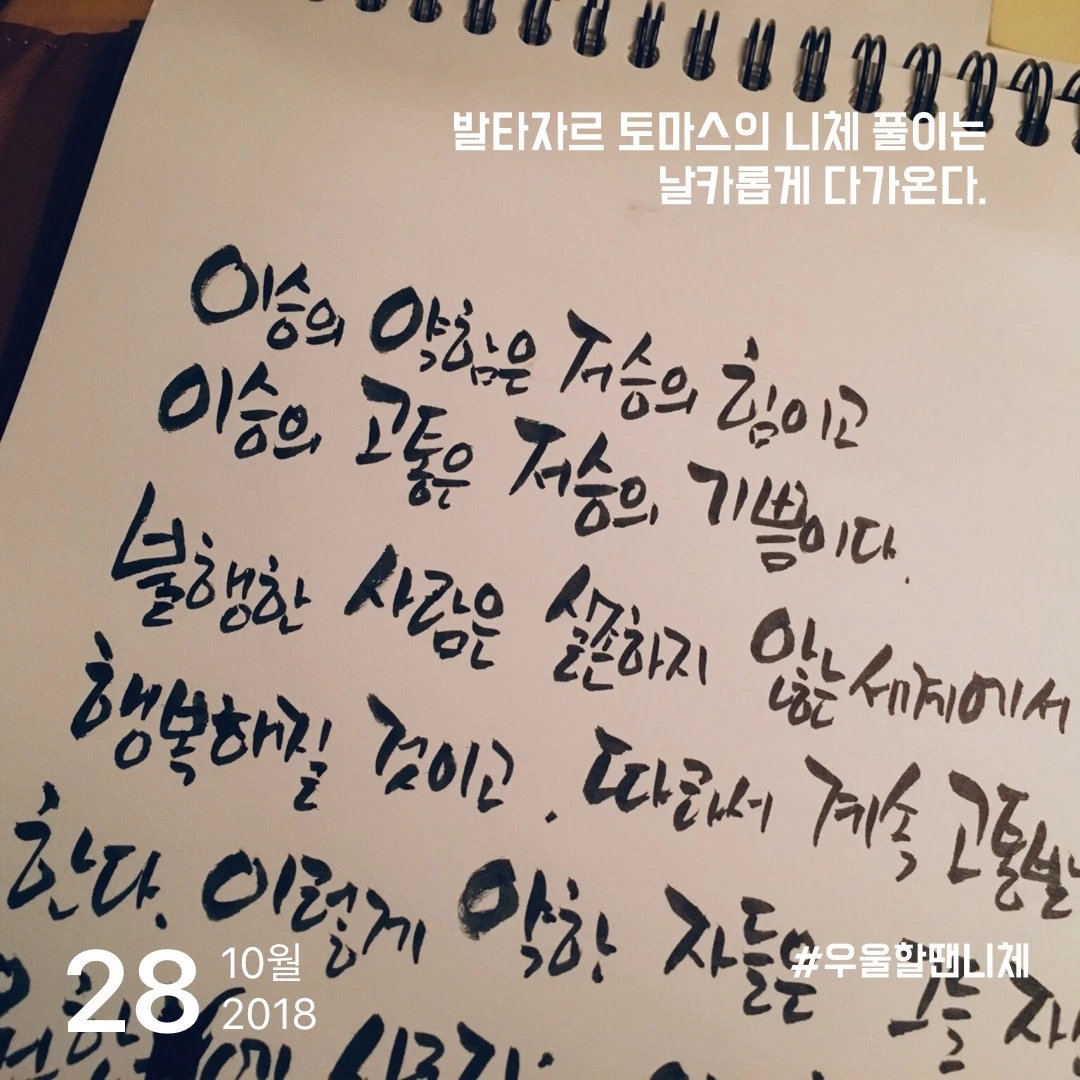 발타자르 토마스의 니체 풀이는
날카롭게 다가온다.
이승의 약함은 저승의 힘이고
이승의 고통은 저승의 기쁨이다.
불행한 사람은 실존하지 않는 세계에서
행복해질 것이고. 따라서 계속 고통받
한다. 이렇게 약한 자들은 그들 자
#우울할땐니체
28 10월
2018